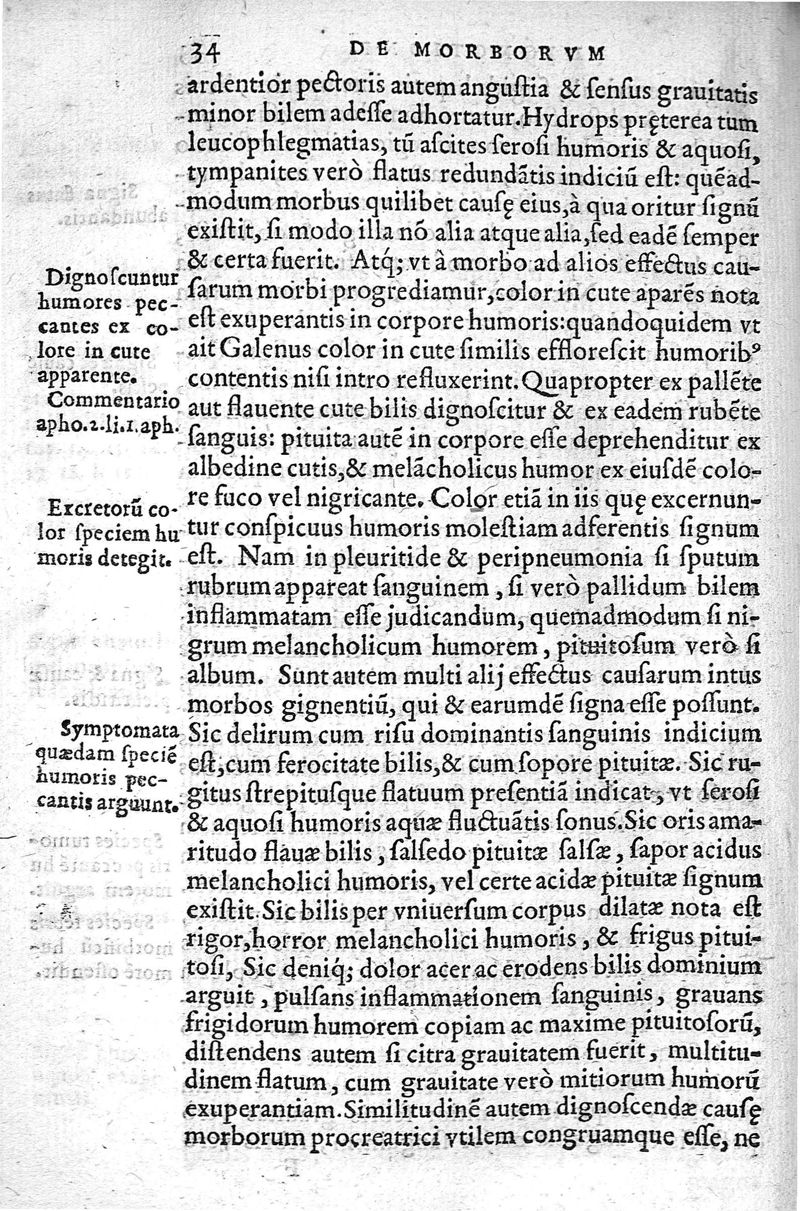 34 DE MORBORVM
ardentior pectoris autem angustia & sensus grauitatis
minor bilem adesse adhortatur. Hydrops pręterea tum
leucophlegmatias, tũ ascites serosi humoris & aquosi,
tympanites verò flatus redundãtis indiciũ est: quẽad-
modum morbus quilibet causę eius, à qua oritur signũ
existit, si modo illa nõ alia atque alia, sed eadẽ semper
& certa fuerit. Atq́; vt à morbo ad alios effectus cau-
sarum morbi progrediamur, color in cute aparẽs nota
est exuperantis in corpore humoris: quandoquidem vt
ait Galenus color in cute similis efflorescit humorib⁹
contentis nisi intro refluxerint. Quapropter ex pallẽte
aut flauente cute bilis dignoscitur & ex eadem rubẽte
sanguis: pituita autẽ in corpore esse deprehenditur ex
albedine cutis, & melãcholicus humor ex eiusdẽ colo-
re fuco vel nigricante. Color etiã in iis quę excernun-
tur conspicuus humoris molestiam adferentis signum
est. Nam in pleuritide & peripneumonia si sputum
rubrum appareat sanguinem, si verò pallidum bilem
inflammatam esse judicandum, quemadmodum si ni-
grum melancholicum humorem, pituitosum verò si
album. Sunt autem multi alij effectus causarum intus
morbos gignentiũ, qui & earumdẽ signa esse possunt.
Sic delirum cum risu dominantis sanguinis indicium
est, cum ferocitate bilis, & cum sopore pituitæ. Sic ru-
gitus strepitusque flatuum presentiã indicat, vt serosi
& aquosi humoris aquæ fluctuãtis sonus. Sic oris ama-
ritudo flauæ bilis, salsedo pituitæ salsæ, sapor acidus
melancholici humoris, vel certe acidæ pituitæ signum
existit. Sic bilis per vniuersum corpus dilatæ nota est
rigor, horror melancholici humoris, & frigus pitui-
tosi, Sic deniq́; dolor acer ac erodens bilis dominium
arguit, pulsans inflammationem sanguinis, grauans
frigidorum humorem copiam ac maxime pituitosorũ,
distendens autem si citra grauitatem fuerit, multitu-
dinem flatum, cum grauitate verò mitiorum humorũ
exuperantiam. Similitudinẽ autem dignoscendæ causę
morborum procreatrici vtilem congruamque esse, ne
Dignoscuntur
humores pec-
cantes ex co-
lore in cute
apparente.
Commentario
apho.2.li.1.aph.
Excretorũ co-
lor speciem hu
moris detegit.
Symptomata
quædam speciẽ
humoris pec-
cantis arguunt.